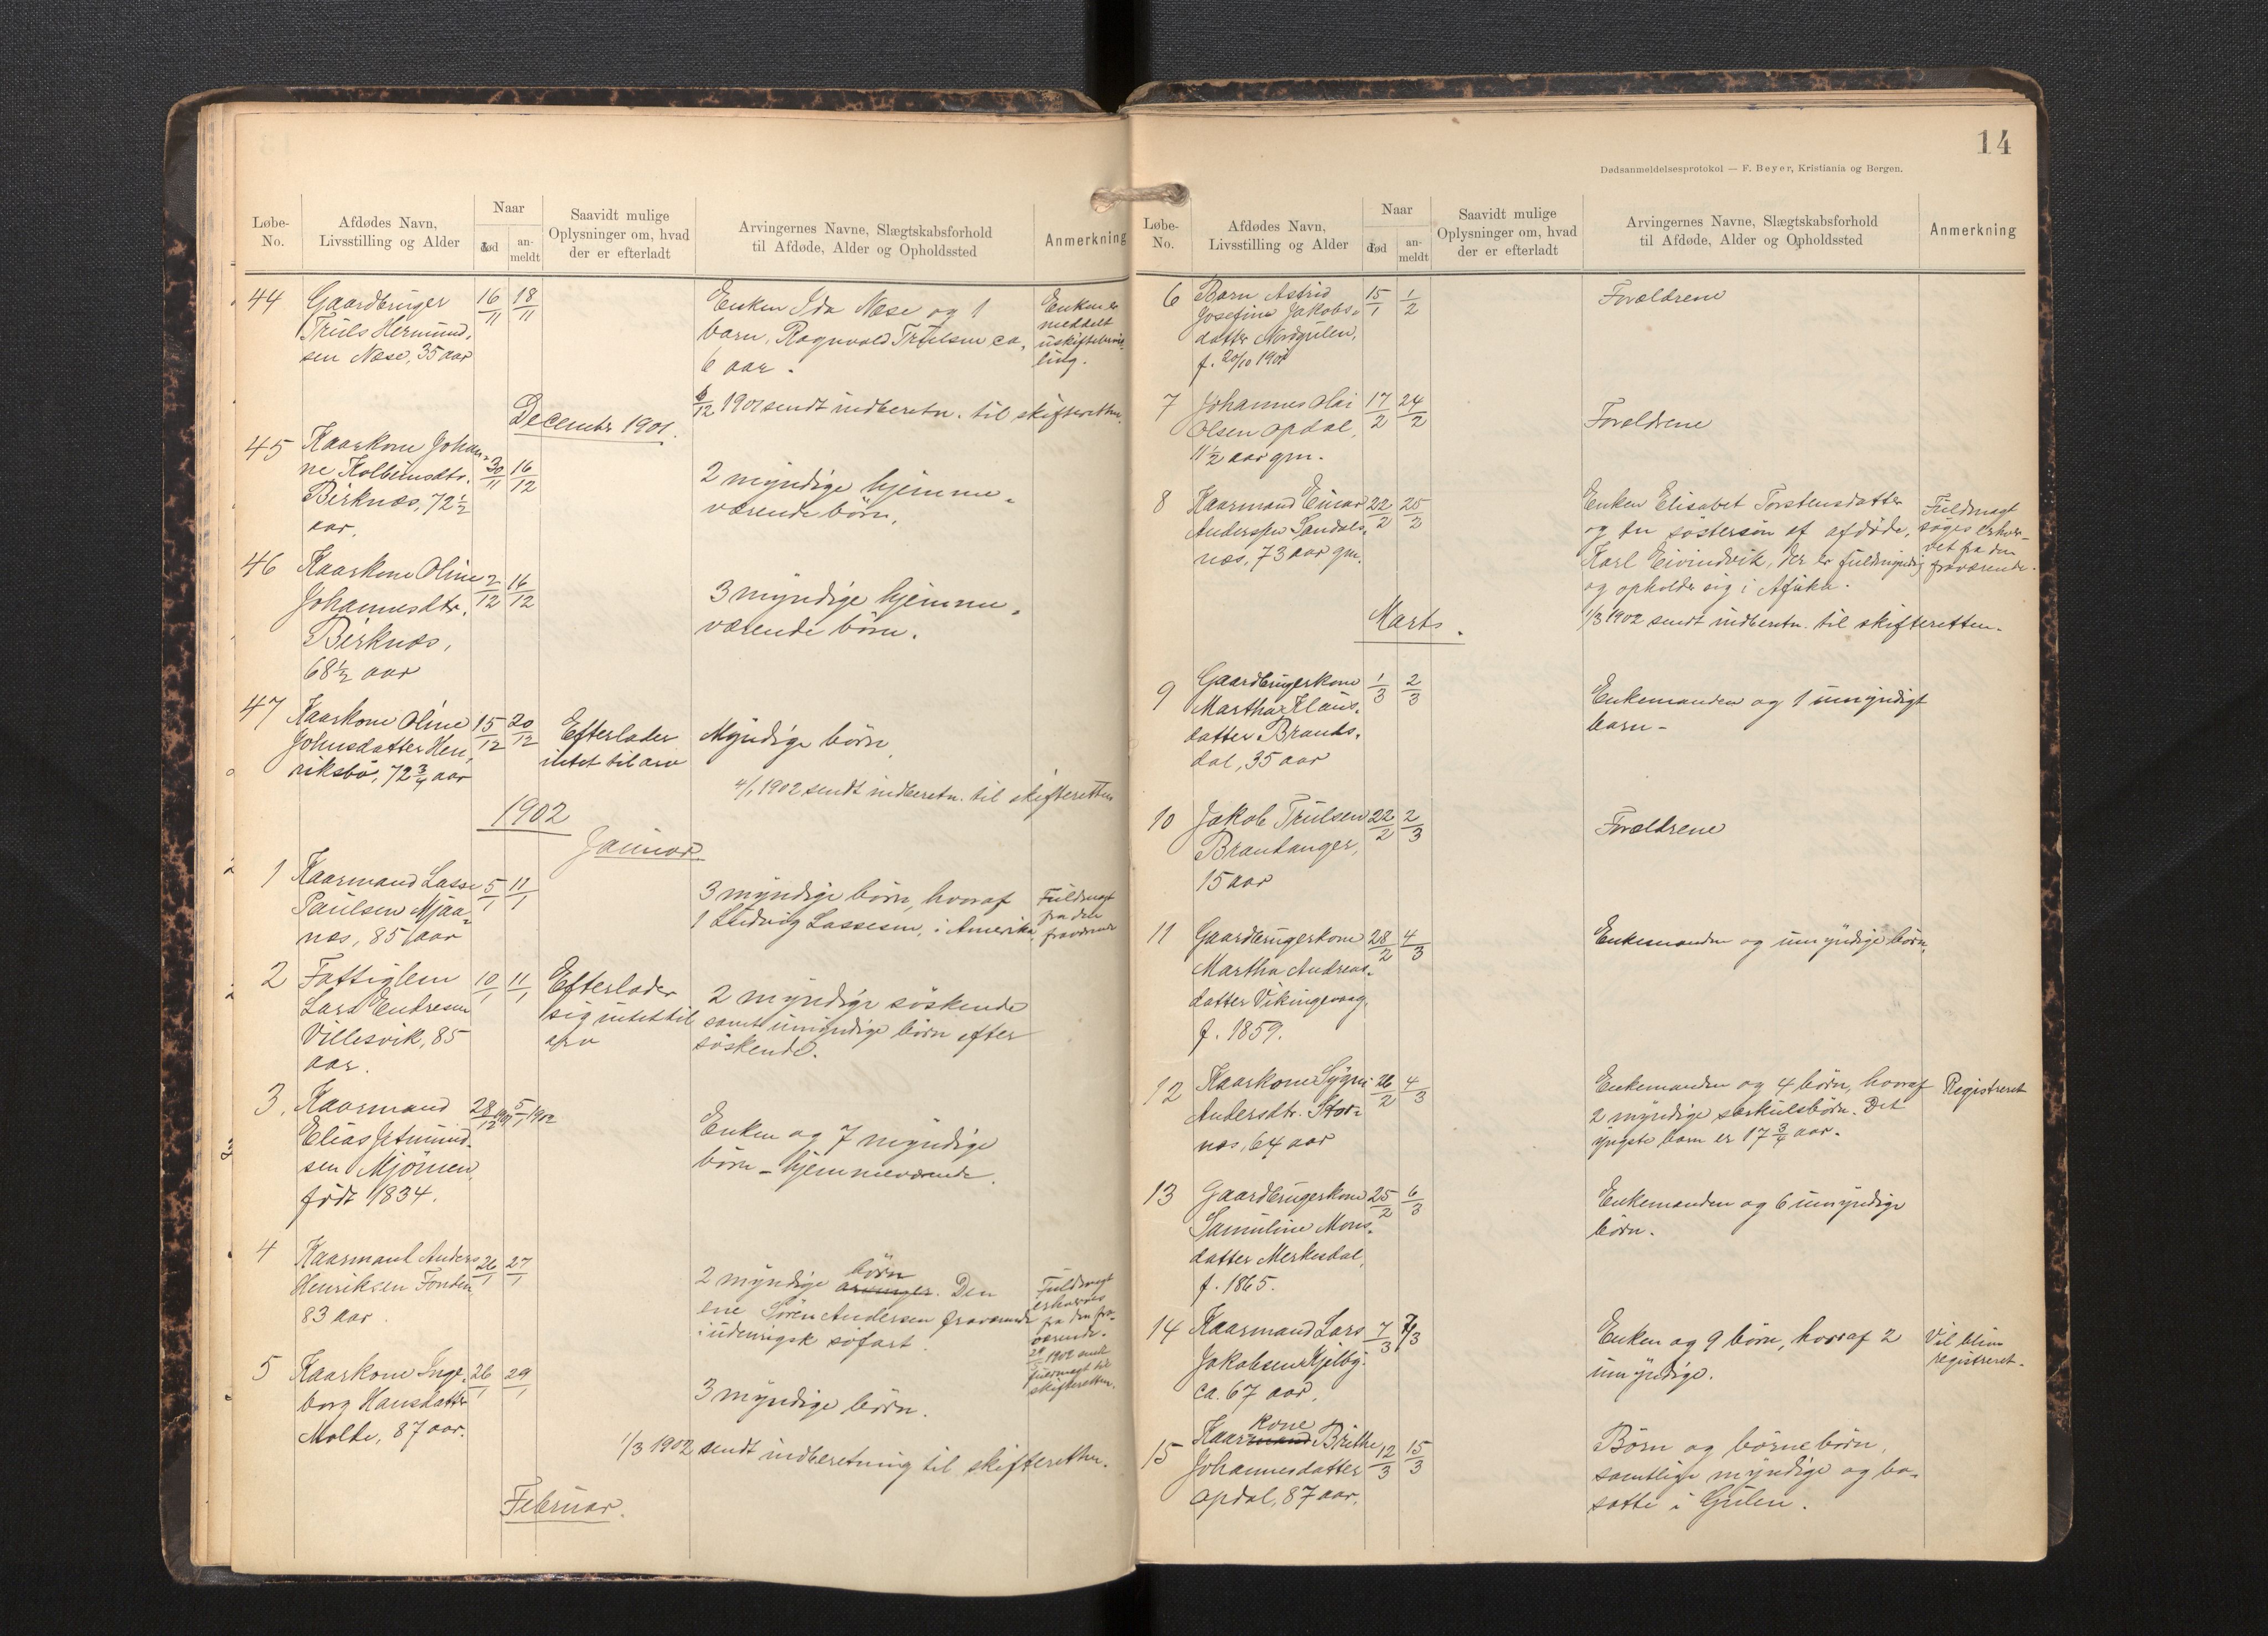 Løbe-
No.
Afdødes Navn,
Livsstilling og Alder
Naar
død
an-
meldt
Saavidt mulige
Oplysninger om, hvad
der er efterladt
Arvingernes Navne, Slægtskabsforhold
til Afdøde, Alder og Opholdssted
Anmerkning
44 Gaardbruger 16/11 18/11 Enken Ida Næse og 1 Enken er
Truls Hermund- barn, Ragnvald Trulsen ca. meddelt
sen Næse, 35 aar 6 aar. uskiftebevil-
ling.
6/12 1901 sendt indberetn. til skifteretten.
December 1901.
45 Kaarkone Johan-
ne Kolbeinsdtr. 30/11 16/12 2 myndige hjemme-
Birknæs, 72 1/2 værende børn.
aar.
46 Kaarkone Oline 2/12 16/12
Johannesdtr. 3 myndige hjemme-
Birknæs, værende børn.
68 1/2 aar
47 Kaarkone Oline 15/12 20/12 Efterlader Myndige børn
Johnsdatter Hen- intet til arv
riksbø, 72 3/4 aar
4/1 1902 sendt indberetn. til skifteretten
1902
Januar.
1 Kaarmand Lasse 5/1 11/1 3 myndige børn, hvoraf Fuldmagt
Paulsen Mjaa- 1 Ludvig Lassesen, i Amerika. fra den
næs, 85 aar fraværende
2 Fattiglem 10/1 11/1 Efterlader 2 myndige søskende
Lars Endresen sig intet til samt umyndige børn efter
Villesvik, 85 arv søskende.
aar.
3. Kaarmand 28/12 1901 5/1 1902
Elias Jetmund- Enken og 7 myndige
sen Mjømen, børn - hjemmeværende.
født 1834.
4 Kaarmand Anders 26/1 27/1 børn
Henriksen Fonden, 2 myndige arvinger. Den Fuldmagt
83 aar ene Søren Andersen fraværende erhverves
i udenrigsk søfart. fra den fra-
værende.
29/3 1902 sendt
fuldmagt til
skifteretten.
5 Kaarkone Inge- 26/1 29/1 3 myndige børn.
borg Hansdatter
Molde, 87 aar.
1/3 1902 sendt indberetning til skifteretten.
Februar.
14
Dødsanmeldelsesprotokol — F. Beyer, Kristiania og Bergen.
Løbe-
No.
Afdødes Navn,
Livsstilling og Alder
Naar
død
an-
meldt
Saavidt mulige
Oplysninger om, hvad
der er efterladt
Arvingernes Navne, Slægtskabsforhold
til Afdøde, Alder og Opholdssted
Anmerkning
6 Barn Astrid 15/1 1/2 Forældrene
Josefine Jakobs-
datter Nordgulen,
f. 20/10 1901
7 Johannes Olai 17/2 24/2 Forældrene
Olsen Opdal,
11 1/2 aar gm.
8 Kaarmand Einar 22/2 25/2 Enken Elisabet Torstensdatter Fuldmagt
Anderssen Sandals- og en søstersøn af afdøde, søges erhver-
næs, 73 aar gm. Karl Eivindvik, der er fuldmyndig vet fra den
og opholder sig i Afrika. fraværende.
1/3 1902 sendt indberetn. til skifteretten.
Marts.
9 Gaardbrugerkone 1/3 2/3 Enkemanden og 1 umyndigt
Martha Klaus- barn -
datter Brands-
dal, 35 aar
10 Jakob Trulsen 22/2 2/3 Forældrene
Brandanger,
15 aar
11 Gaardbrugerkone 28/2 4/3 Enkemanden og umyndige børn.
Martha Andreas-
datter Vikingevaag
f. 1859.
12 Kaarkone Sygni 26/2 4/3 Enkemanden og 4 børn, hvoraf Registreret
Andersdtr. Stor- 2 myndige særkulsbørn. Det
næs, 64 aar yngste barn er 17 3/4 aar.
13 Gaardbrugerkone 25/2 6/3 Enkemanden og 6 umyndige
Samuline Mons- børn.
datter Merkesdal,
f. 1865.
14 Kaarmand Lars 7/3 7/3 Enken og 9 børn, hvoraf 2 Vil blive
Jakobsen Kjelby. umyndige. registreret.
ca. 67 aar.
kone
15 Kaarmand Brithe 12/3 15/3 Børn og børnebørn,
Johannesdatter samtlige myndige og bo-
Opdal, 87 aar. satte i Gulen.